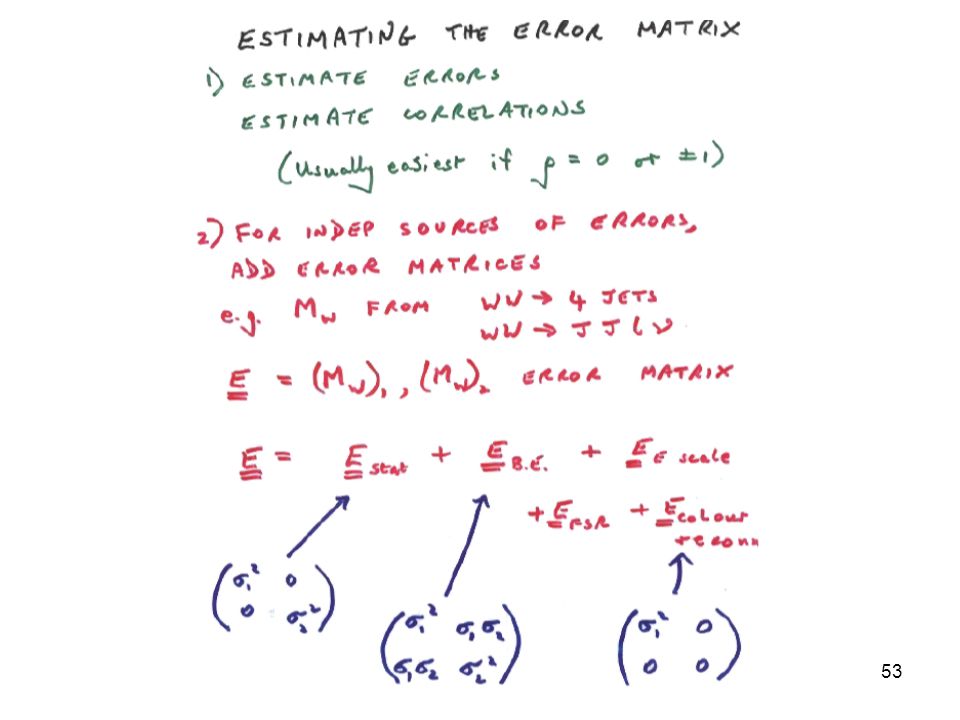 ESTIMATING THE ERROR MATRIX
1) ESTIMATE ERRORS
ESTIMATE CORRELATIONS
(Usually easiest if ρ = 0 or ±1)
2) FOR INDEP SOURCES OF ERRORS,
ADD ERROR MATRICES
e.g. M_W FROM WW → 4 JETS
WW → J J l ν
E = (M_W)₁, (M_W)₂ ERROR MATRIX
E = E stat + E B.E. + E E scale
+ E FSR + E colour
reconn
(σ₁² 0
0 σ₂²)
(σ₁² σ₁σ₂
σ₁σ₂ σ₂²)
(σ₁² 0
0 0)
53